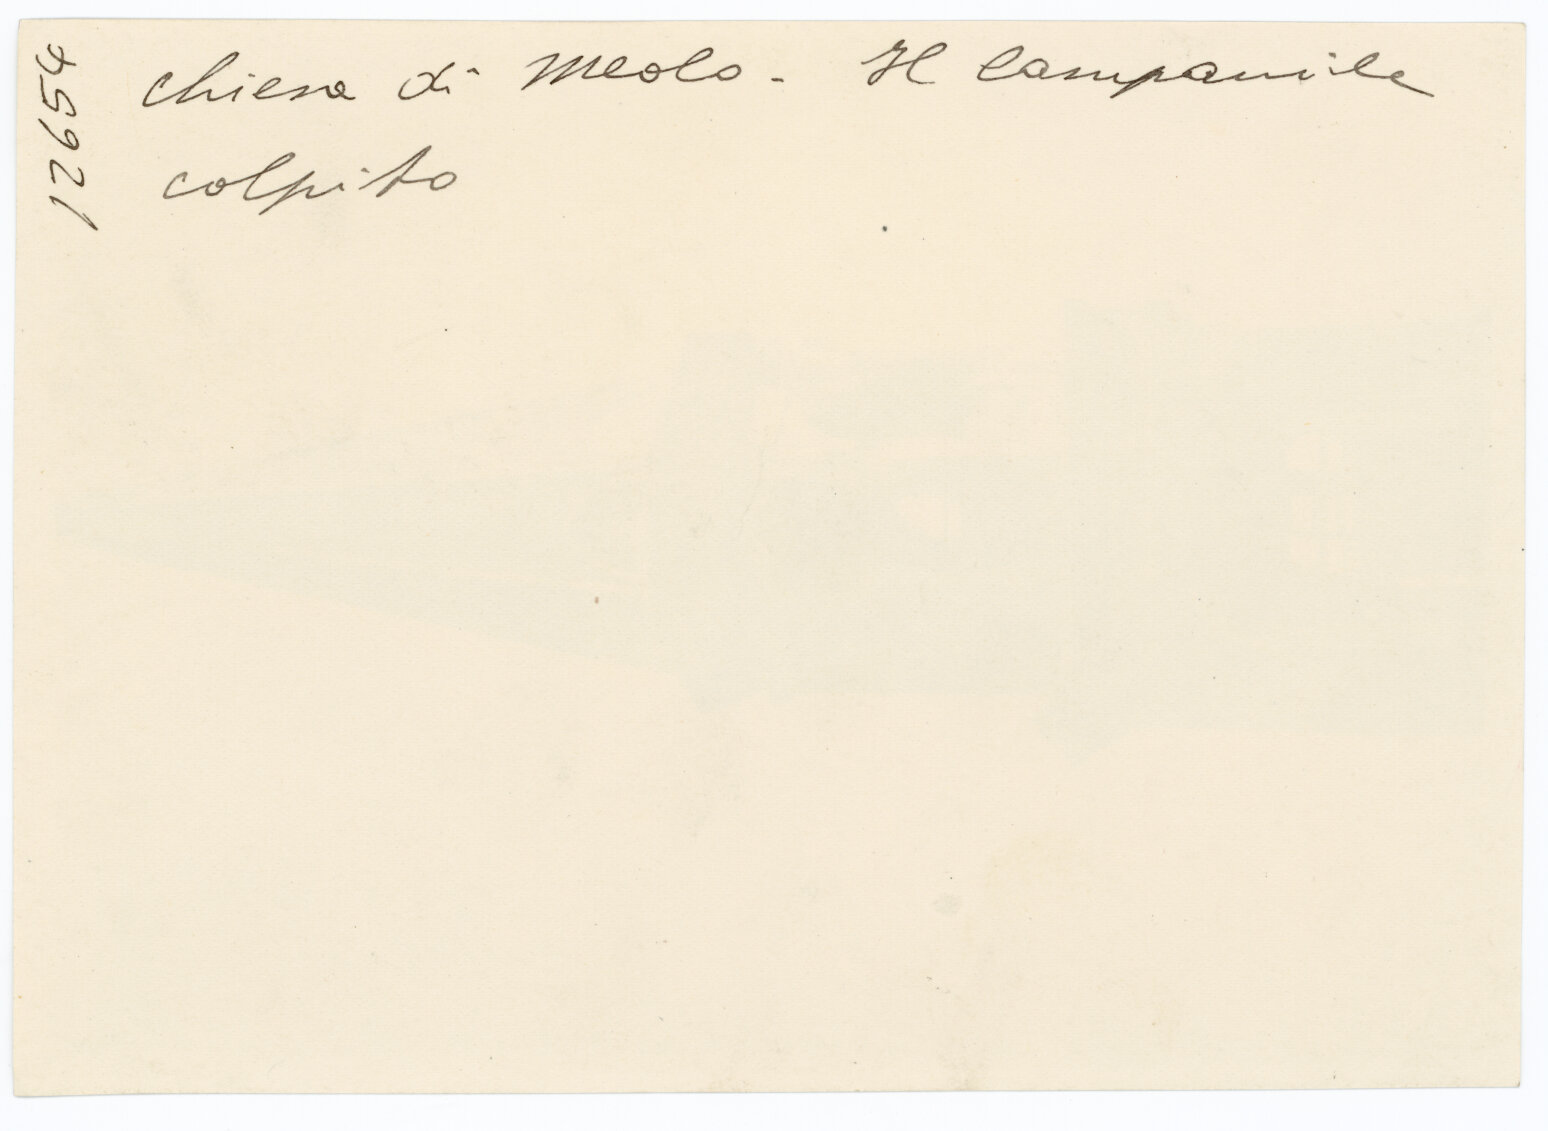 Chiesa di Meolo - Il Campanile
colpito
12654